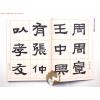 周周宣
王中興
有張仲
以孝友